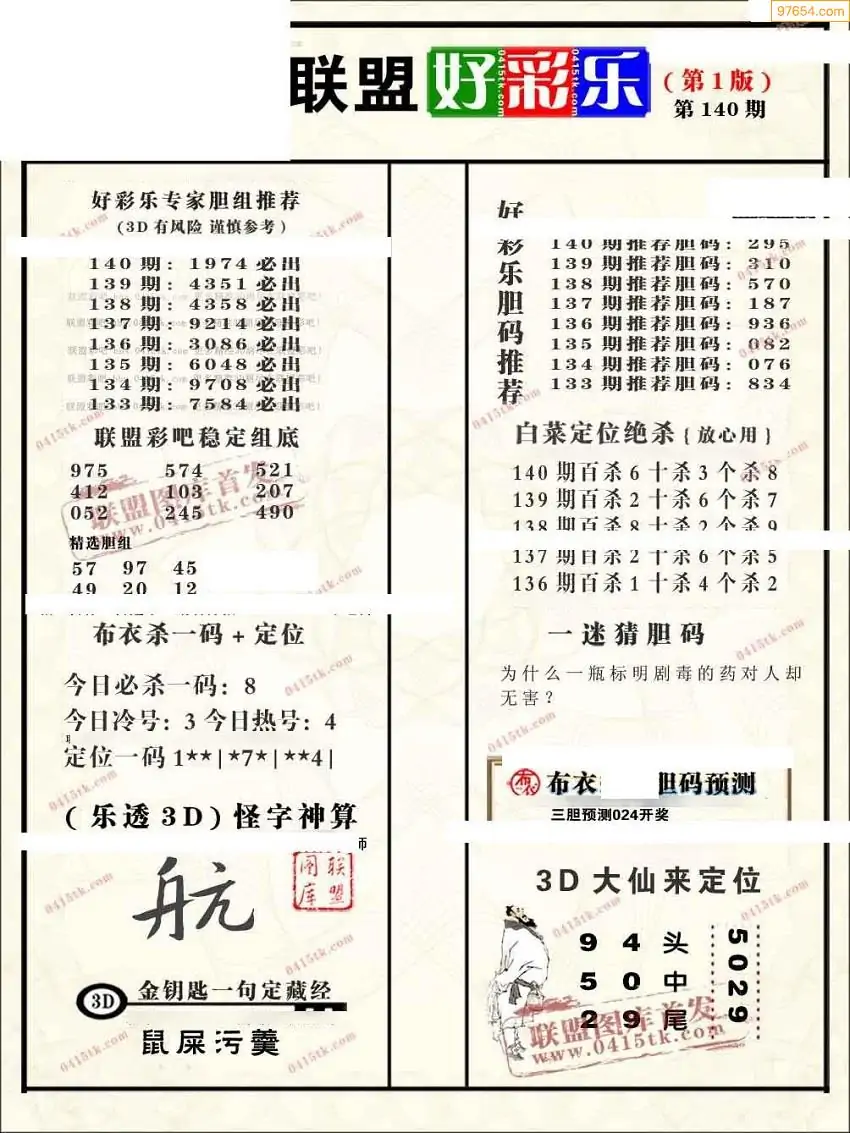 97654.com
联盟好彩乐
(第1版)
第140期
好彩乐专家胆组推荐
(3D有风险 谨慎参考)
140期:1974必出
139期:4351必出
138期:4358必出
137期:9214必出
136期:3086必出
135期:6048必出
134期:9708必出
133期:7584必出
联盟彩吧稳定组底
975 574 521
412 103 207
052 245 490
联盟图库首发
www.0415tk.com
精选胆组
57 97 45
49 20 12
布衣杀一码+定位
今日必杀一码:8
今日冷号:3 今日热号:4
定位一码1**|*7*|**4|
(乐透3D)怪字神算
航
联盟图库
3D 金钥匙一句定藏经
鼠屎污羹
好彩乐胆码推荐
140期推荐胆码:295
139期推荐胆码:310
138期推荐胆码:570
137期推荐胆码:187
136期推荐胆码:936
135期推荐胆码:082
134期推荐胆码:076
133期推荐胆码:834
白菜定位绝杀{放心用}
140期百杀6十杀3个杀8
139期百杀2十杀6个杀7
138期百杀8十杀2个杀9
137期百杀2十杀6个杀5
136期百杀1十杀4个杀2
一迷猜胆码
为什么一瓶标明剧毒的药对人却
无害?
布衣 胆码预测
三胆预测024开奖
3D大仙来定位
9 4 头
5 0 中
2 9 尾
5029
联盟图库首发
www.0415tk.com